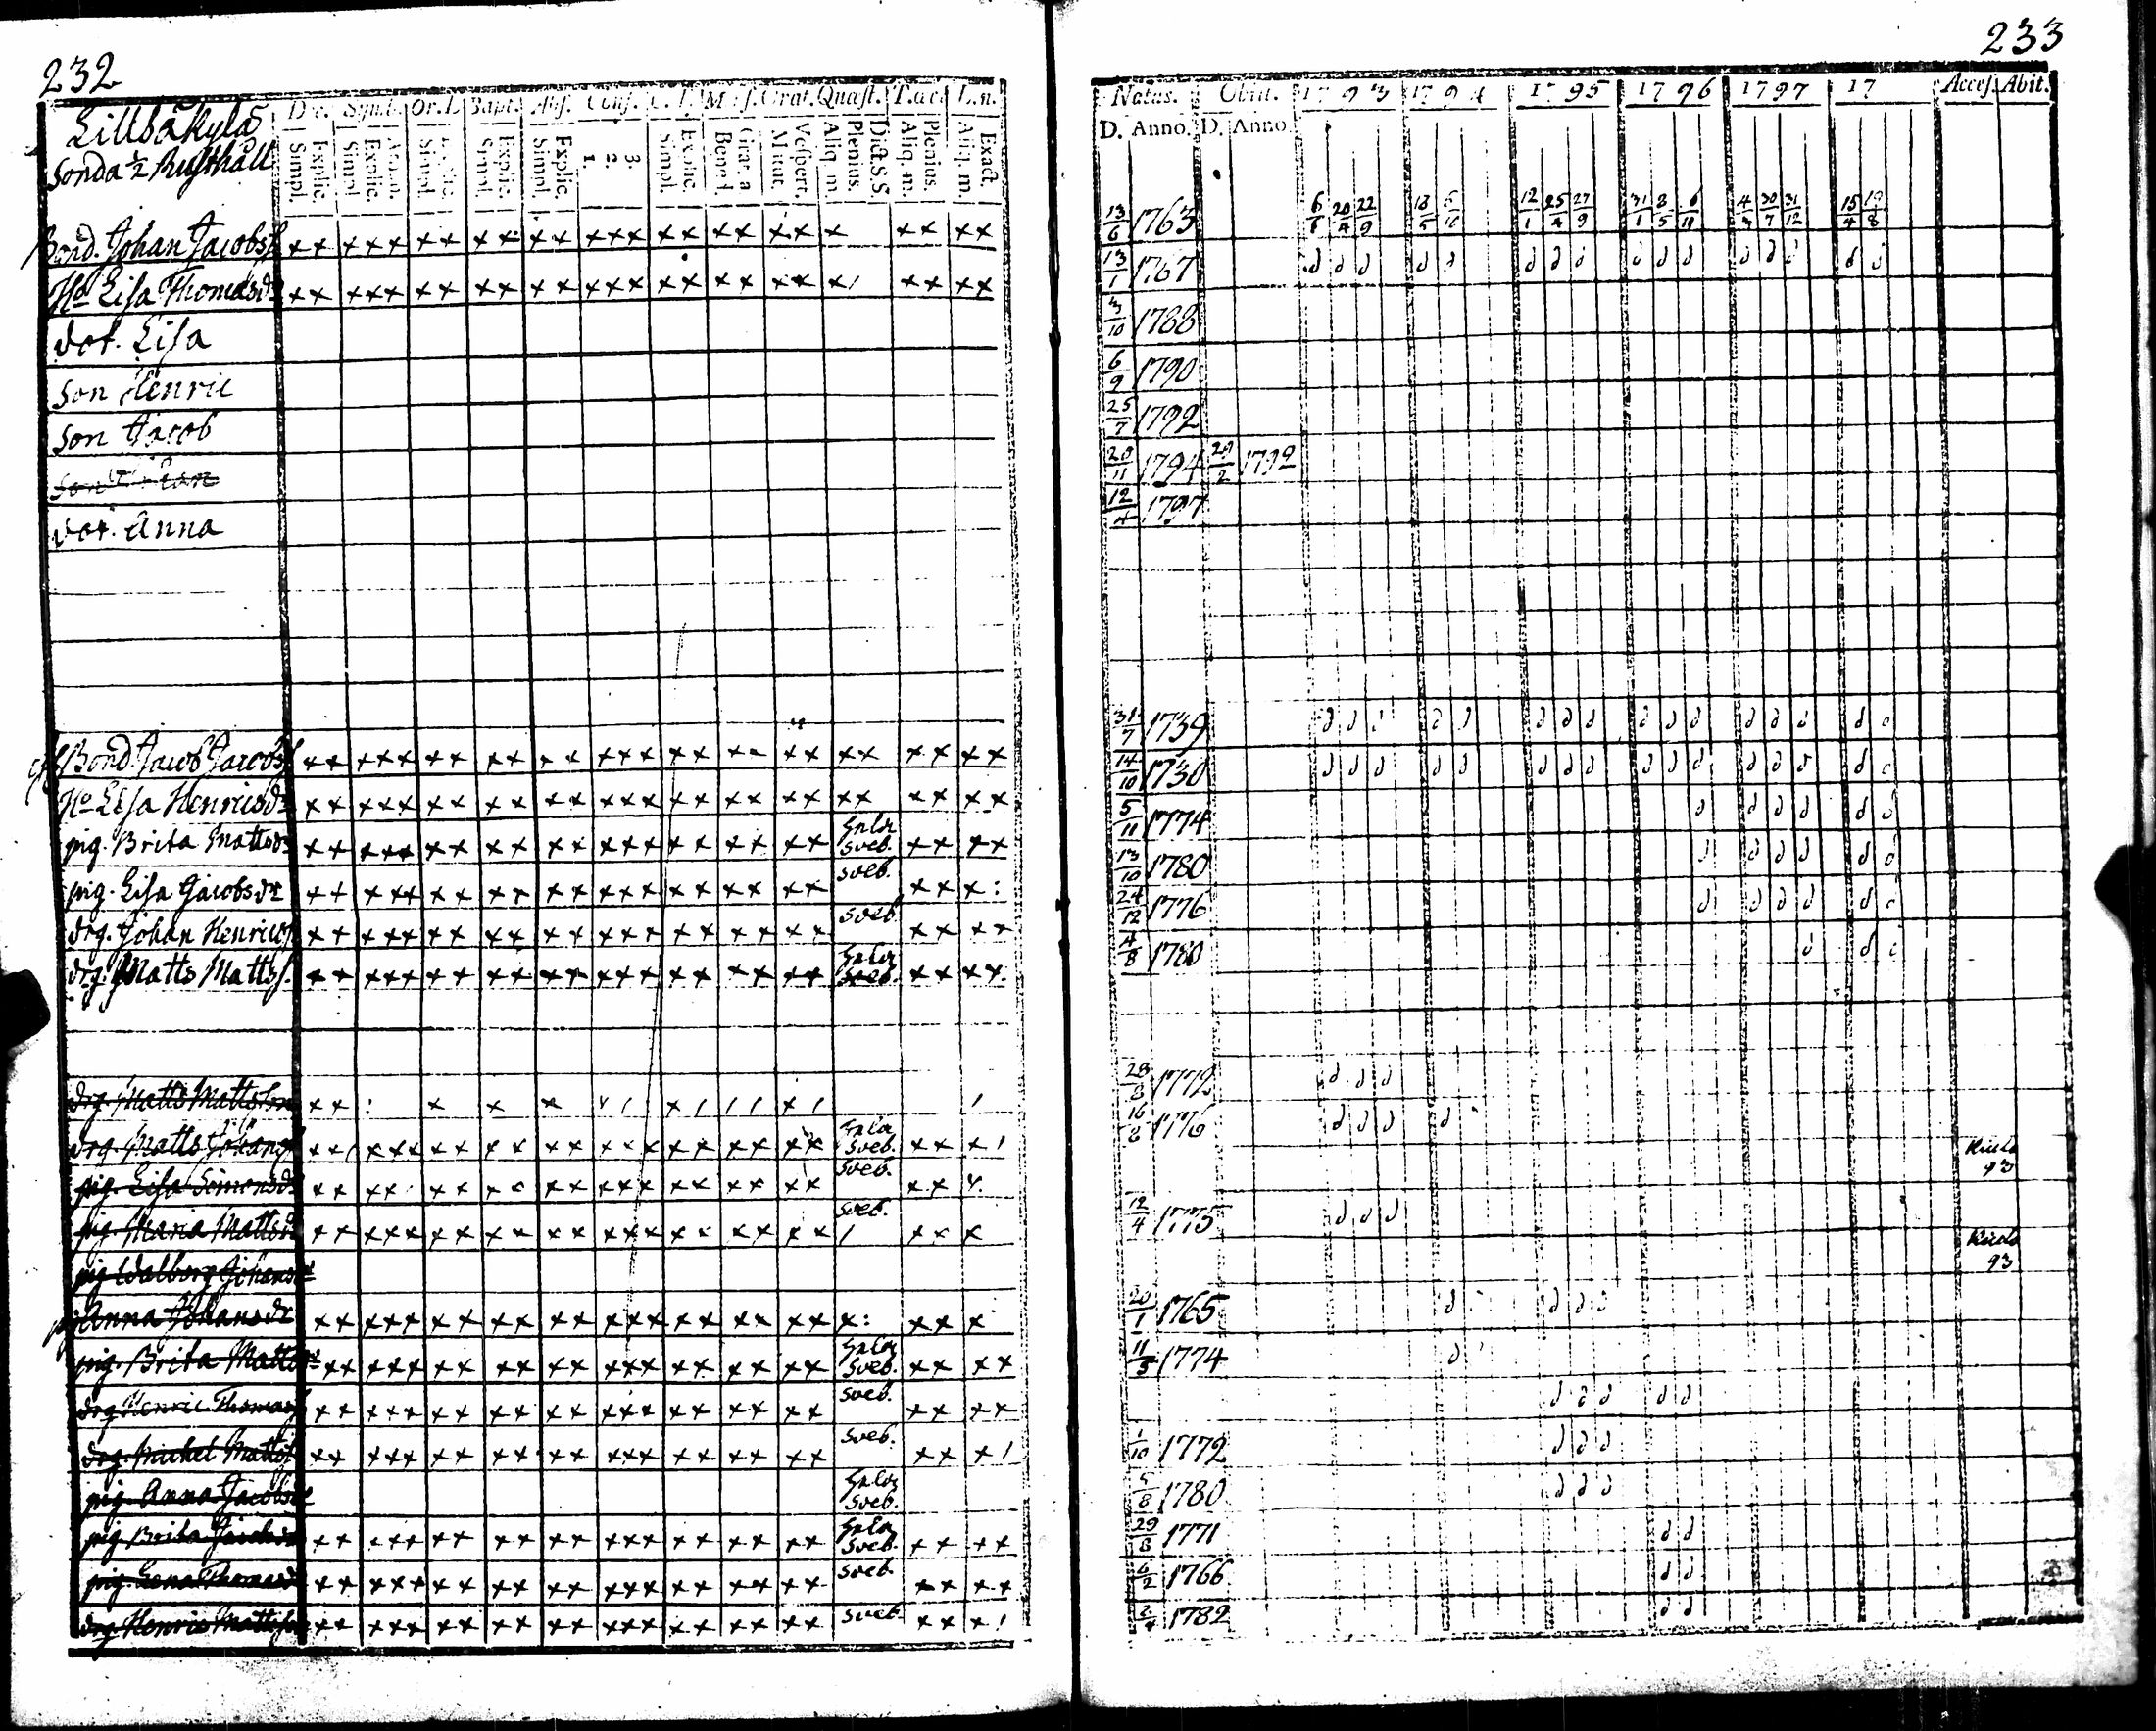 232
Lillbåkylä
Sonda ½ Rusthåll
Dec. Symb. Or.D. Bapt. Abs. Conf. C.D. Mens. Grat. Quæst. T.œc. L.n.
Simpl. Explic. Simpl. Explic. Simpl. Simpl. Explic. Simpl. Explic. 1. 2. 3. Simpl. Explic. Bened. Grat. a Matut. Vespert. Aliq. m. Plenius. Dict. S.S. Aliq. m. Plenius. Aliq. m. Exact.
Bond. Johan Jacobss xx xxx xx xx xx xxx xx xx xx x xx xx
Hu Lisa Thomasdr xx xxx xx xx xx xxx xx xx xx x/ xx xx
dot. Lisa
Son Henric
Son Jacob
dot. Anna
Bond Jacob Jacobss xx xxx xx xx xx xxx xx xx xx xx xx xx
Hu Lisa Henricsdr xx xxx xx xx xx xxx xx xx xx xx xx xx
pig. Brita Mattsdr xx xxx xx xx xx xxx xx xx xx Sveb. xx xx
pig. Lisa Jacobsdr xx xxx xx xx xx xxx xx xx xx Sveb. xx x:
drg. Johan Henricss xx xxx xx xx xx xxx xx xx xx Sveb. xx xx
drg. Matts Mattss. xx xxx xx xx xx xxx xx xx xx Sveb. xx xx
drg. Matts Mattson xx : x x x x/ x/ // x/ /
drg. Matts Johanss xx/ xxx xx xx xx xxx xx xx xx Sveb. xx x/
pig. Lisa Simonsdr xx xx xx xx xx xxx xx xx xx Sveb. xx x
pig. Maria Mattsdr xx xxx xx xx xx xxx xx xx xx Sveb. / xx x
pig Walborg Johansdr
pig Anna Johansdr xx xxx xx xx xx xxx xx xx xx x: xx x
pig. Brita Mattsdr xx xxx xx xx xx xxx xx xx xx Sveb. xx xx
drg Henric Thomass xx xxx xx xx xx xxx xx xx xx Sveb. xx xx
drg. Michel Mattss xx xxx xx xx xx xxx xx xx xx Sveb. xx x/
pig. Anna Jacobsdr Sveb.
pig. Brita Jacobsdr xx xxx xx xx xx xxx xx xx xx Sveb. xx xx
pig. Lena Thomasdr xx xxx xx xx xx xxx xx xx xx Sveb. xx xx
drg Henric Mattsson xx xxx xx xx xx xxx xx xx xx Sveb. xx x/
233
Natus. Obiit. 1793 1794 1795 1796 1797 17 Access. Abit.
D. Anno. D. Anno.
13/6 1763 6/1 20/4 22/9 18/5 12/1 25/4 27/9 31/1 8/5 6/11 4/4 30/7 31/12 15/4 19/8
13/1 1767
4/10 1788
6/9 1790
25/7 1792
20/11 1794 1798
12/4 1797
31/7 1739
14/10 1730
5/11 1774
13/10 1780
24/12 1776
4/8 1780
28/8 1772
16/8 1776
93
12/4 1775
93
20/1 1765
11/5 1774
1/10 1772
5/8 1780
29/8 1771
6/2 1766
2/4 1782